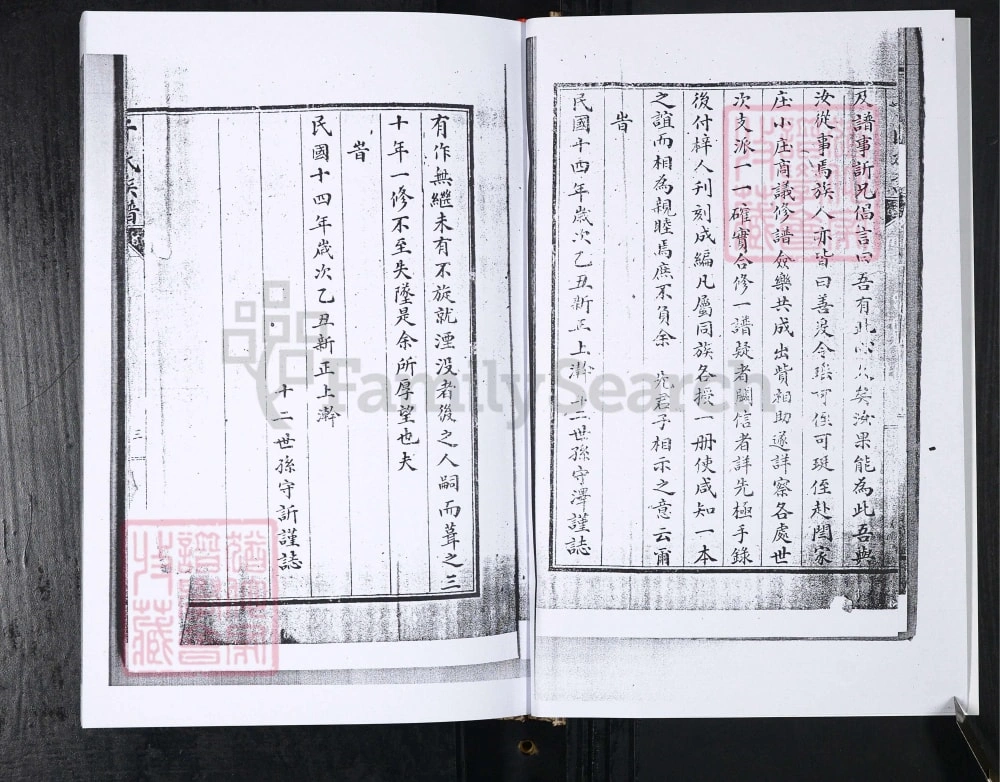 及譜事訢兄倡言曰吾有此心久矣汝果能為此吾與
汝從事焉族人亦皆曰善爰令瑞可侄可珽侄赴閆家
庄小庄商議修譜僉樂共成出貲相助遂詳察各處世
次支派一一確實合修一譜疑者闕信者詳先極手錄
後付梓人刊刻成編凡屬同族各授一册使咸知一本
之誼而相為親睦焉庶不負余 先君子相示之意云爾
旹
民國十四年歲次乙丑新正上澣 十二世孫守澤謹誌
有作無繼未有不旋就湮没者後之人嗣而葺之三
十年一修不至失墜是余所厚望也夫
旹
民國十四年歲次乙丑新正上澣
十二世孫守訢謹誌
氏族譜
三
FamilySearch